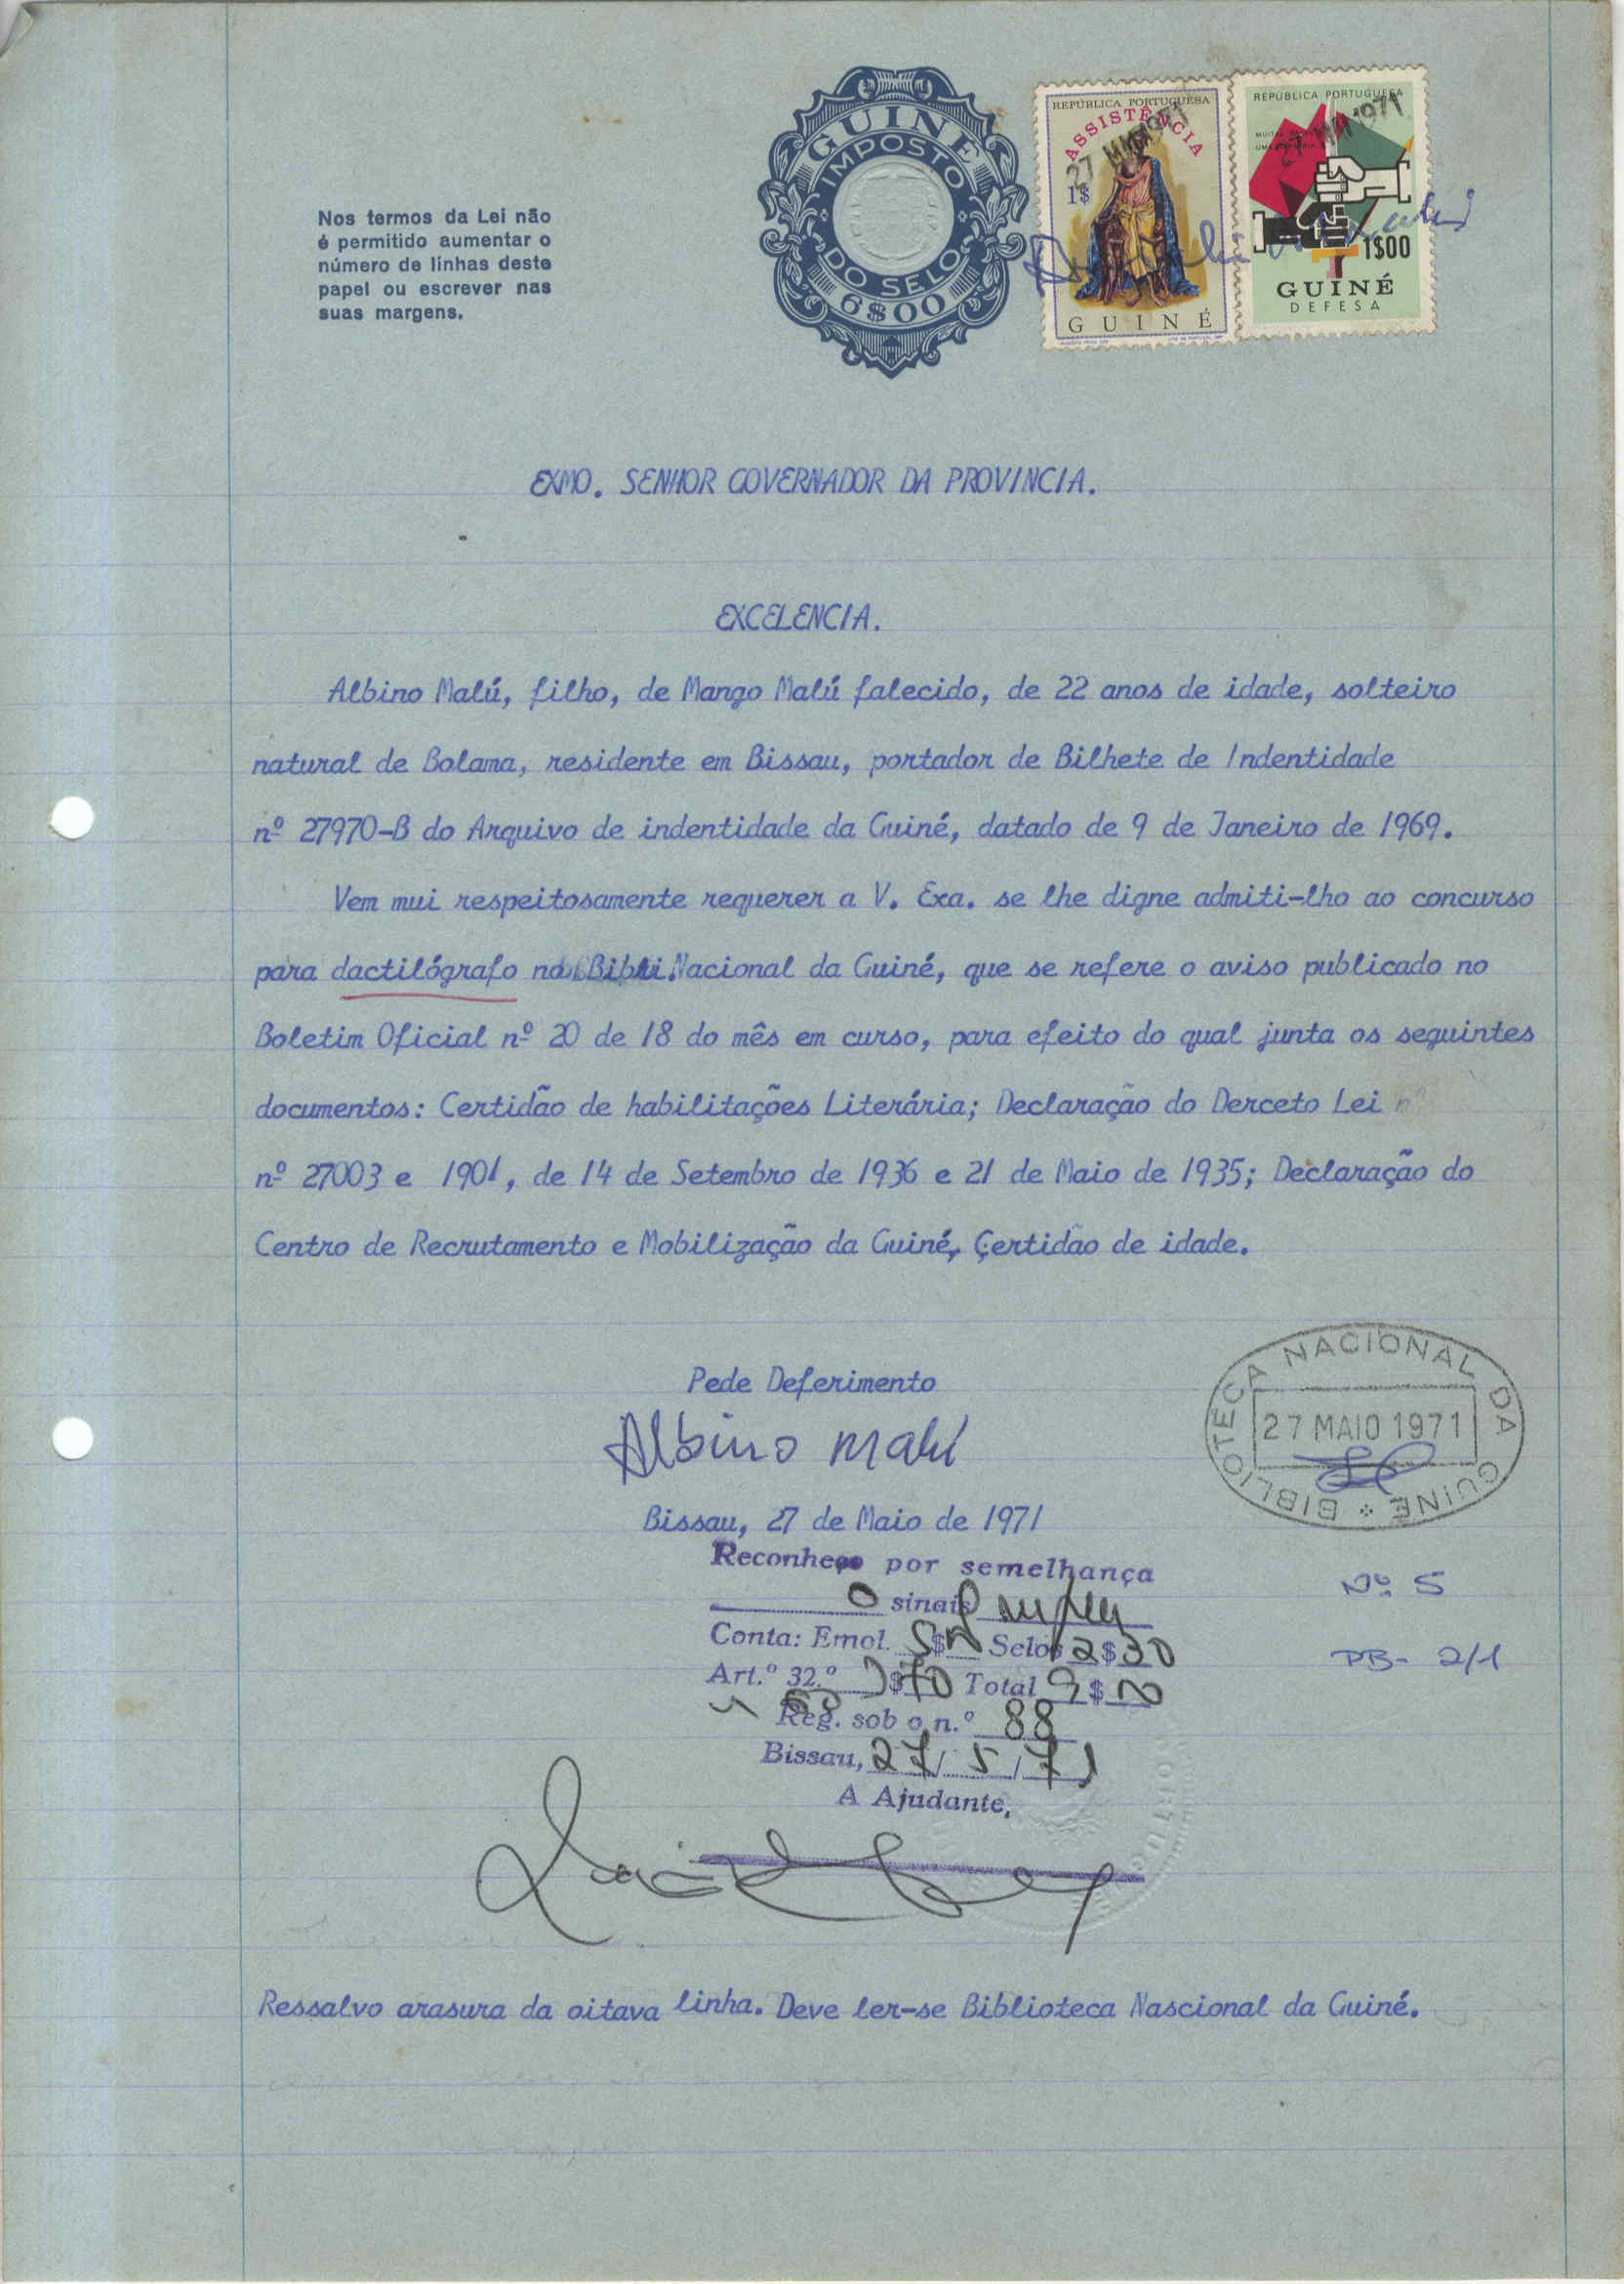 Nos termos da Lei não
é permitido aumentar o
número de linhas deste
papel ou escrever nas
suas margens.
GUINÉ
IMPOSTO
DO SELO
6$00
REPÚBLICA PORTUGUESA
ASSISTÊNCIA
27 MAI 1971
1$
GUINÉ
REPÚBLICA PORTUGUESA
27 MAI 1971
1$00
GUINÉ
DEFESA
EXMO. SENHOR GOVERNADOR DA PROVINCIA.
EXCELENCIA.
Albino Malú, filho, de Mango Malú falecido, de 22 anos de idade, solteiro
natural de Bolama, residente em Bissau, portador de Bilhete de Indentidade
nº 27970-B do Arquivo de indentidade da Guiné, datado de 9 de Janeiro de 1969.
Vem mui respeitosamente requerer a V. Exa. se lhe digne admiti-lho ao concurso
para dactilógrafo na Bibli.Nacional da Guiné, que se refere o aviso publicado no
Boletim Oficial nº 20 de 18 do mês em curso, para efeito do qual junta os seguintes
documentos: Certidão de habilitações Literária; Declaração do Derceto Lei nº
nº 27003 e 1901, de 14 de Setembro de 1936 e 21 de Maio de 1935; Declaração do
Centro de Recrutamento e Mobilização da Guiné, Çertidão de idade.
Pede Deferimento
Albino Malú
BIBLIOTECA NACIONAL DA GUINÉ
27 MAIO 1971
Bissau, 27 de Maio de 1971
Reconheço por semelhança
O sinais
Nº 5
Conta: Emol. $ Selos 2$30
PB- 2/1
Art.º 32.º $70 Total 9$00
Reg. sob o n.º 88
Bissau, 27/5/71
A Ajudante,
Ressalvo arasura da oitava linha. Deve ler-se Biblioteca Nascional da Guiné.